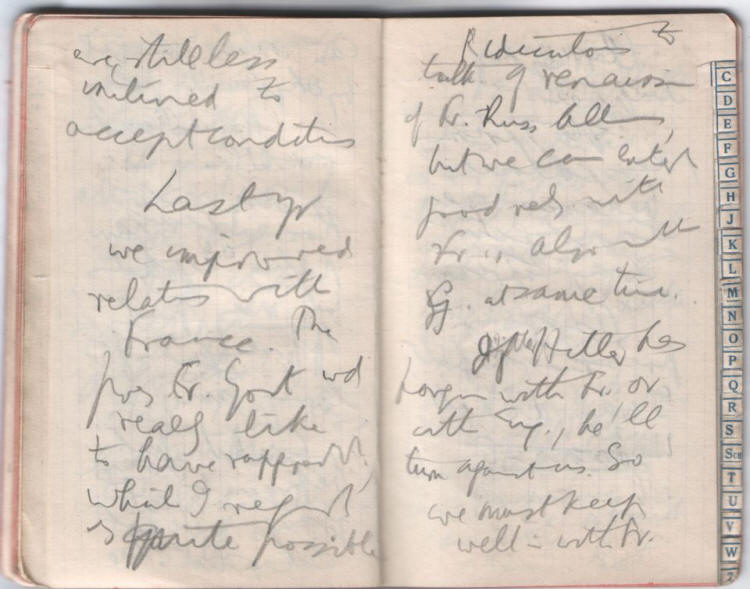 are, still less
inclined to
accept conditions
Last yr
we improved
relations with
France. The
pres Fr. Govt wd
really like
to have rapproch,
which I regard
as quite possible
Ridiculous to
talk of renaiss
of Fr. Russ. all
but we can
good rels with
Fr. is also with
G. at same time.
If Hitler has
bargn with Fr. or
with Eng., he'll
turn against us. So
we must keep
well in with Fr.
C
D
E
F
G
H
J
K
L
M
N
O
P
Q
R
S
Sch
T
U
V
W